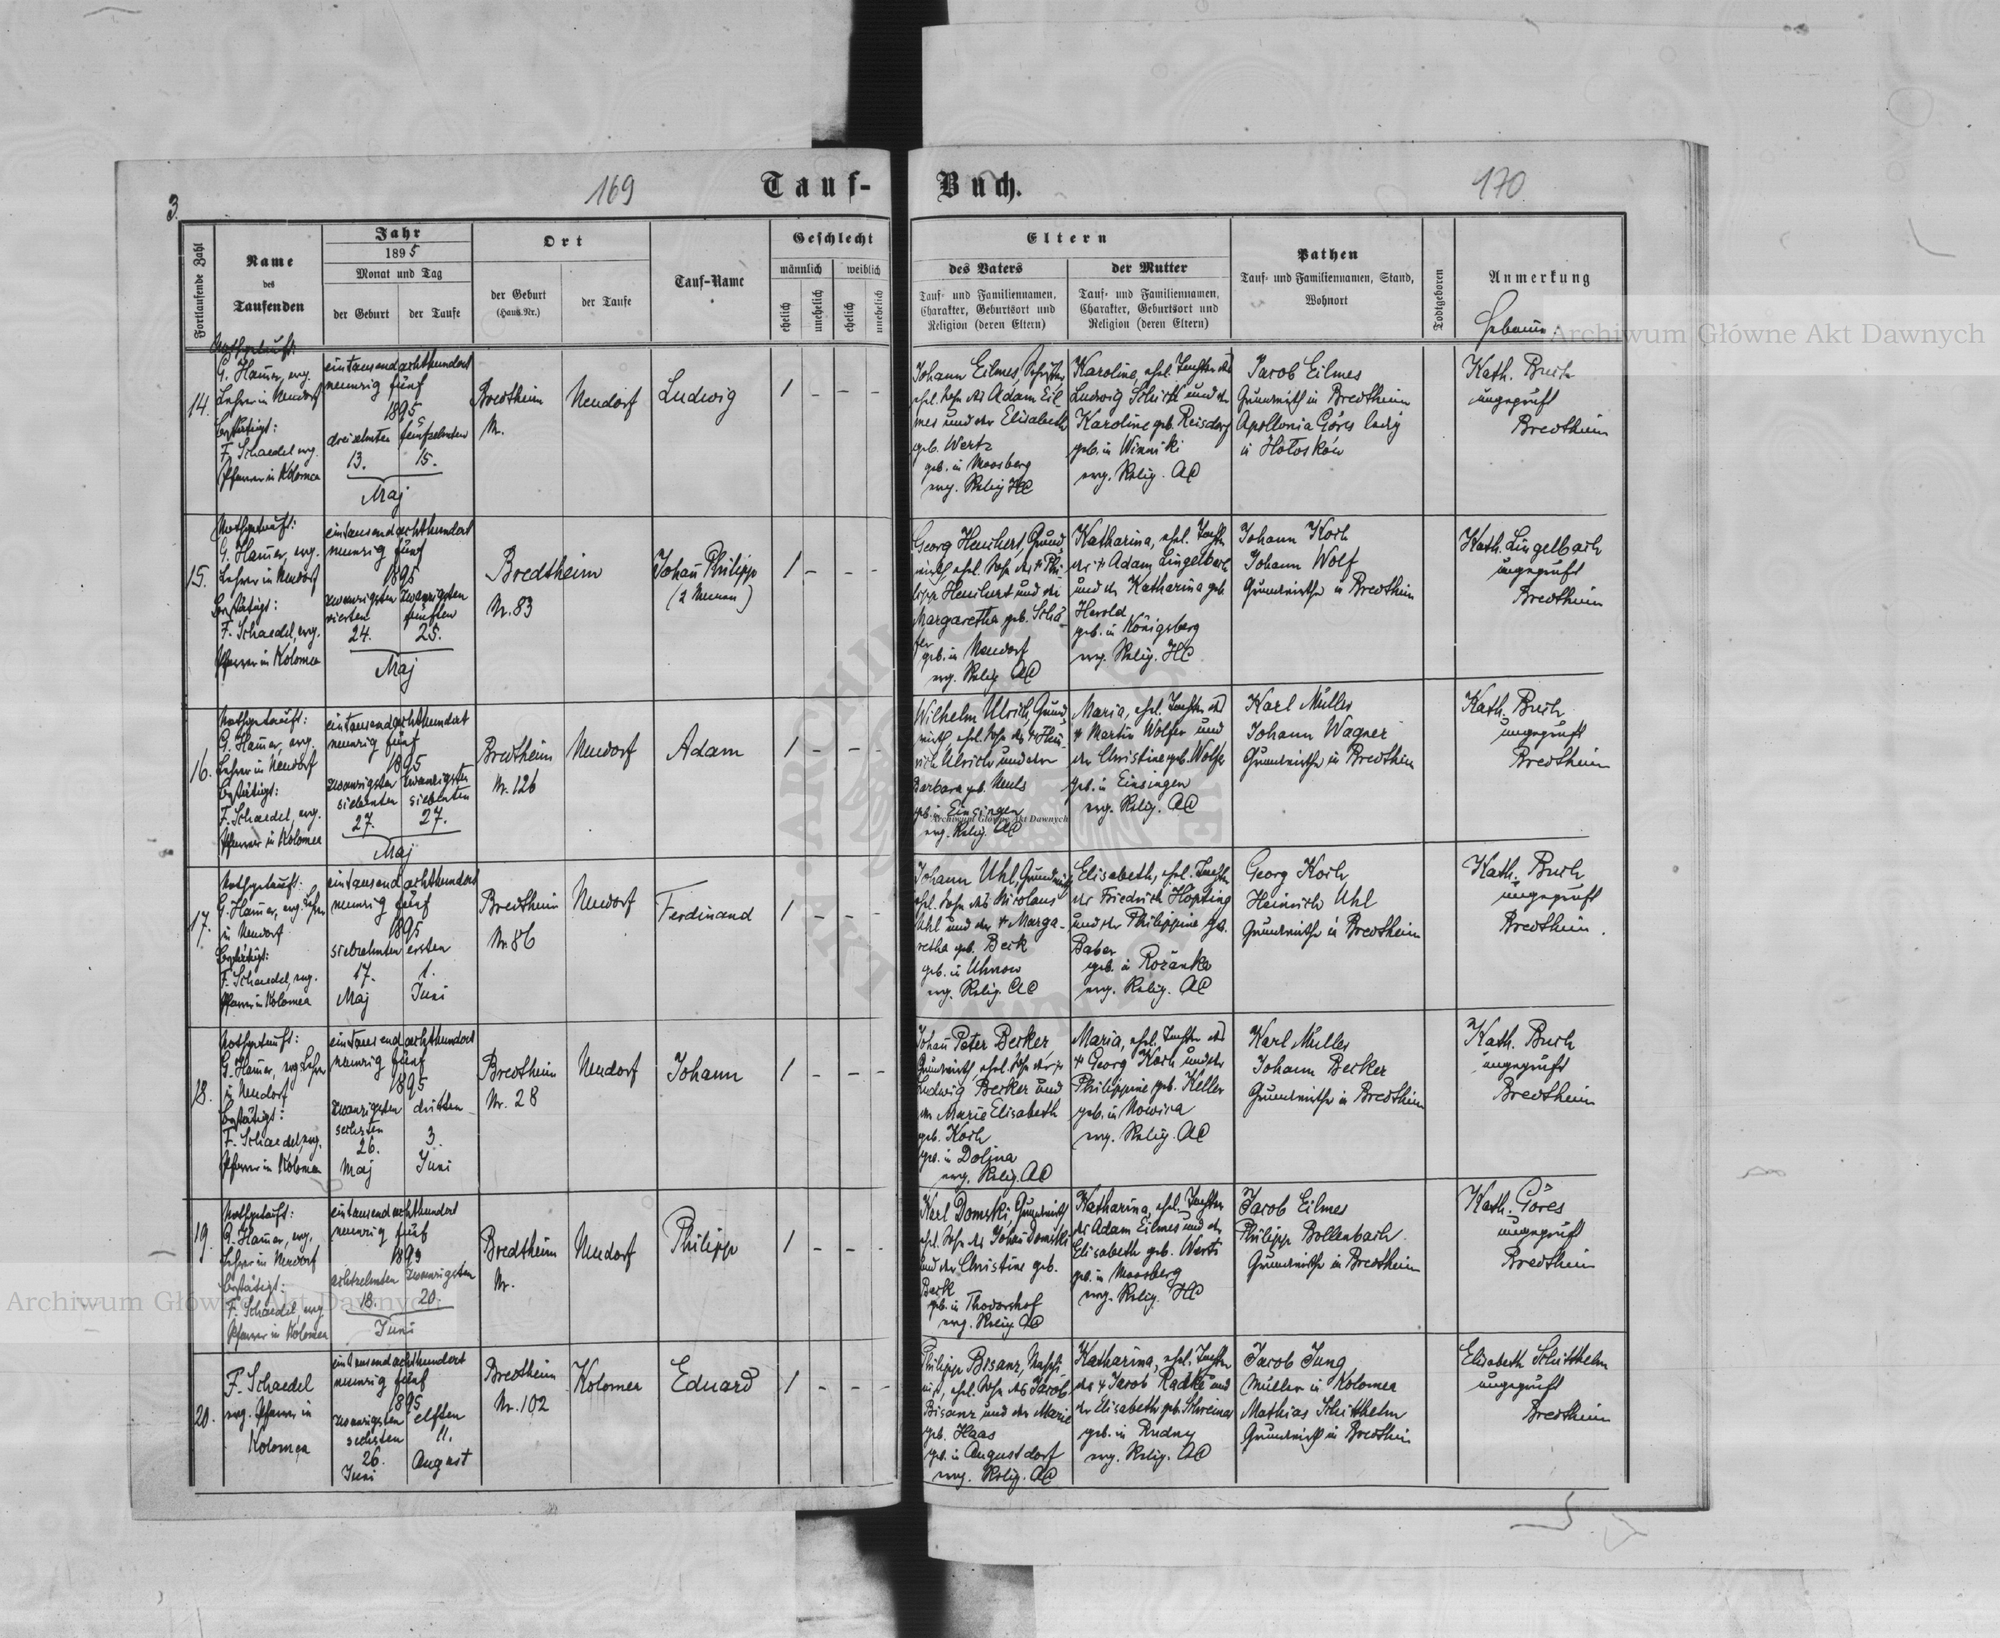 3.
169
Tauf-
Fortlaufende Zahl
Name
des
Taufenden
Jahr
1895
Monat und Tag
der Geburt
der Taufe
Ort
der Geburt
(Haus-Nr.)
der Taufe
Tauf-Name
Geschlecht
männlich
weiblich
ehelich
unehelich
ehelich
unehelich
14.
Nothgetauft:
G. Hamer, evg.
Lehrer in Neudorf
bestätigt:
F. Schaedel evg.
Pfarrer in Kolomea
eintausendachthundert
neunzig fünf
1895
dreizehnten fünfzehnten
13. 15.
Maj
Bredtheim
Nr.
Neudorf
Ludwig
1 - - -
15.
Nothgetauft:
G. Hamer, evg.
Lehrer in Neudorf
bestätigt:
F. Schaedel, evg.
Pfarrer in Kolomea
eintausendachthundert
neunzig fünf
1895
zwanzigsten zwanzigsten
vierten fünften
24. 25.
Maj
Bredtheim
Nr. 83
Johan̄ Philipp
(2 Namen)
1 - - -
16.
Nothgetauft:
G. Hamer, evg.
Lehrer in Neudorf
bestätigt:
F. Schaedel, evg.
Pfarrer in Kolomea
eintausendachthundert
neunzig fünf
1895
zwanzigsten zwanzigsten
siebenten siebenten
27. 27.
Maj
Bredtheim
Nr. 126
Neudorf
Adam
1 - - -
17.
Nothgetauft:
G. Hamer, evg. Lehrer
in Neudorf
bestätigt:
F. Schaedel, evg.
Pfarrer in Kolomea
eintausendachthundert
neunzig fünf
1895
siebzehnten ersten
17. 1.
Maj Juni
Bredtheim
Nr. 86
Neudorf
Ferdinand
1 - - -
18.
Nothgetauft:
G. Hamer, evg Lehrer
in Neudorf
bestätigt:
F. Schaedel, evg.
Pfarrer in Kolomea
eintausendachthundert
neunzig fünf
1895
zwanzigsten dritten
sechsten
26. 3.
Maj Juni
Bredtheim
Nr. 28
Neudorf
Johann
1 - - -
19.
Nothgetauft:
G. Hamer, evg.
Lehrer in Neudorf
bestätigt:
F. Schaedel, evg.
Pfarrer in Kolomea
eintausendachthundert
neunzig fünf
1895
achtzehnten zwanzigsten
18. 20.
Juni
Bredtheim
Nr.
Neudorf
Philipp
1 - - -
20.
F. Schaedel
evg. Pfarrer in
Kolomea
eintausendachthundert
neunzig fünf
1895
zwanzigsten elften
sechsten 11.
26. August
Juni
Bredtheim
Nr. 102
Kolomea
Eduard
1 - - -
Buch.
170
Eltern
des Vaters
Tauf- und Familiennamen,
Charakter, Geburtsort und
Religion (deren Eltern)
der Mutter
Tauf- und Familiennamen,
Charakter, Geburtsort und
Religion (deren Eltern)
Pathen
Tauf- und Familiennamen, Stand,
Wohnort
Todtgeboren
Anmerkung
Johann Eilmes,
ehel. Sohn des Adam Eil-
mes und der Elisabeth
geb. Wertz
geb. in Moosberg
evg. Relig HC
Karoline, ehel. Tochter des
Ludwig Schick und der
Karoline geb. Reisdorf
geb. in Winniki
evg. Relig. AC
Jacob Eilmes
Grundwirth in Bredtheim
Apollonia Göres ledig
in Hołosków
Kath. Buch
ungeprüft
Bredtheim
Georg Heuchert, Grund-
wirth, ehel. Sohn des † Phi-
lipp Heuchert und der
Margaretha geb. Schä-
fer
geb. in Neudorf
evg. Relig AC
Katharina, ehel. Tochter
des † Adam Lingelbach
und der Katharina geb.
Herold
geb. in Königsberg
evg. Relig. HC
Johann Koch
Johann Wolf
Grundwirthe in Bredtheim
Kath. Lingelbach
ungeprüft
Bredtheim
Wilhelm Ulrich, Grund-
wirth, ehel. Sohn des † Hein-
rich Ulrich und der
Barbara geb. Neuls
geb. in Einsingen
evg. Relig. AC
Maria, ehel. Tochter des
† Martin Wolfer und
der Christine geb. Wolfer
geb. in Einsingen
evg. Relig. AC
Karl Müller
Johann Wagner
Grundwirthe in Bredtheim
Kath. Buch
ungeprüft
Bredtheim
Johann Uhl, Grundwirth
ehel. Sohn des Nicolaus
Uhl und der † Marga-
retha geb. Beck
geb. in Uhnow
evg. Relig. AC
Elisabeth, ehel. Tochter
des Friedrich Höpting
und der Philippine geb.
Baber
geb. in Rożanka
evg. Relig. AC
Georg Koch
Heinrich Uhl
Grundwirthe in Bredtheim
Kath. Buch
ungeprüft
Bredtheim.
Johan̄ Peter Becker
Grundwirth, ehel. Sohn des †
Ludwig Becker und
der Marie Elisabeth
geb. Koch
geb. in Dolina
evg. Relig. AC
Maria, ehel. Tochter des
† Georg Koch und der
Philippine geb. Keller
geb. in Nowica
evg. Relig. AC
Karl Müller
Johann Becker
Grundwirthe in Bredtheim
Kath. Buch
ungeprüft
Bredtheim
Karl Domski, Grundwirth
ehel. Sohn des Johan̄ Domski
und der Christine geb.
Beck
geb. in Theodorshof
evg. Relig. AC
Katharina, ehel. Tochter
des Adam Eilmes und der
Elisabeth geb. Wertz
geb. in Moosberg
evg. Relig. HC
Jacob Eilmes
Philipp Bollenbach
Grundwirthe in Bredtheim
Kath. Göres
ungeprüft
Bredtheim
Philipp Bisanz,
ehel. Sohn des Jacob
Bisanz und der Marie
geb. Haas
geb. in Augustdorf
evg. Relig. AC
Katharina, ehel. Tochter
des † Jacob Radke und
der Elisabeth geb. Schreiner
geb. in Rudny
evg. Relig. AC
Jacob Jung
Müller in Kolomea
Mathias Schitthelm
Grundwirth in Bredtheim
Elisabeth Schitthelm
ungeprüft
Bredtheim
Archiwum Główne Akt Dawnych
Archiwum Główne Akt Dawnych
Archiwum Główne Akt Dawnych